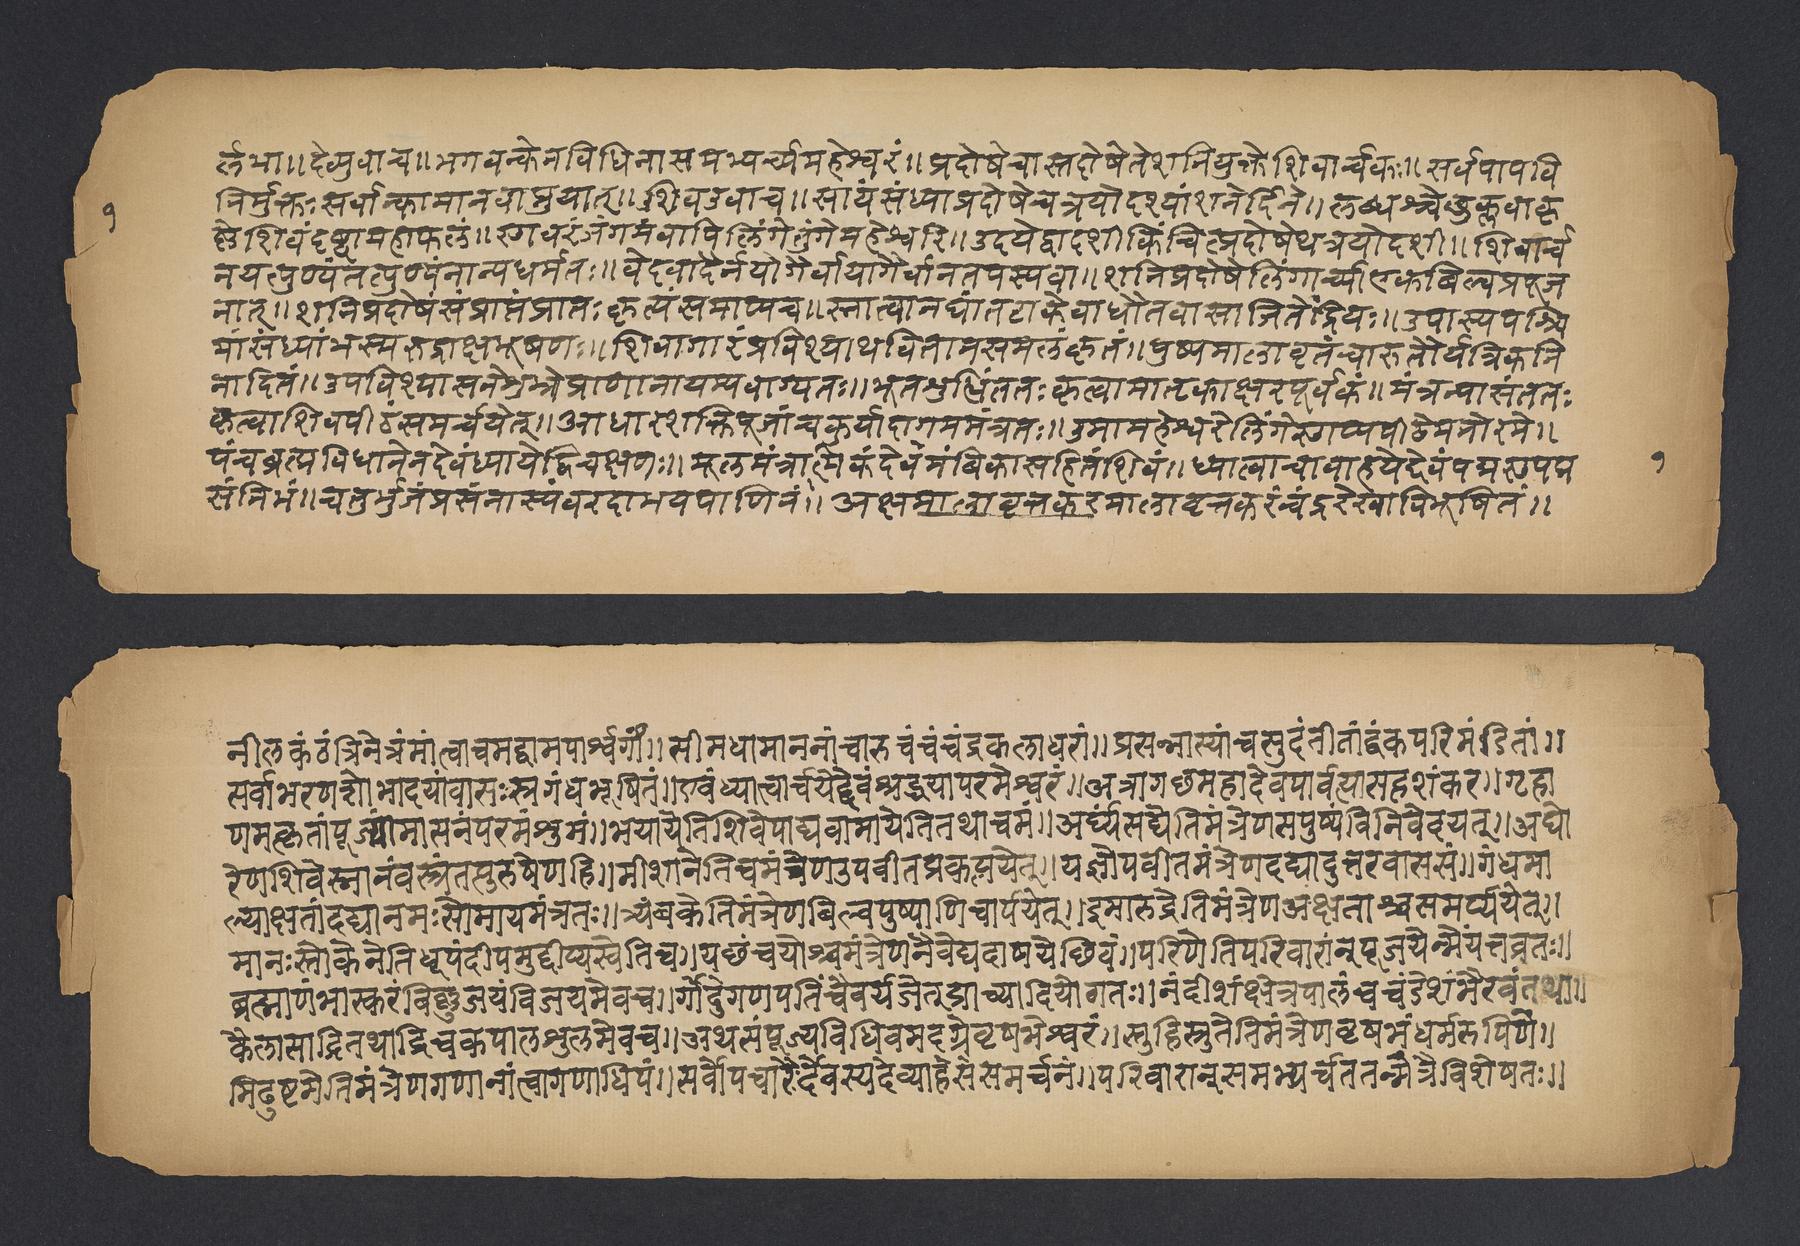 र्लभा ॥ देव्युवाच ॥ भगवन्केनविधिनासमभ्यर्च्यमहेश्वरं ॥ प्रदोषेचास्तदोषेतेशनियुक्तेशिवार्च्चकः ॥ सर्वपापवि
१
निर्मुक्तःसर्वान्कामानवाप्नुयात् ॥ शिवउवाच ॥ सायंसंध्याप्रदोषेचत्रयोदश्यांशनेर्दिने ॥ लभ्यश्च्चेच्छुक्लवाकृ
ष्णेशिवंदृष्ट्वामहाफलं ॥ स्थावरंजंगमंवापिलिंगेलुंगेमहेश्वरि ॥ उदयेद्वादशीकिंचित्प्रदोषेथत्रयोदशी ॥ शिवार्च्च
नयत्पुण्यंतत्पुण्यंनान्यधर्मतः ॥ वेदवादैर्नयोगैर्वायागैर्वानतपस्यवा ॥ शनिप्रदोषेलिंगार्च्याएकबिल्वप्रपूज
नात् ॥ शनिप्रदोषसंप्राप्तंप्रातःकृत्यंसमाप्यच ॥ स्नात्वानद्यांतटाकेवाधौतवासाजितेंद्रियः ॥ उपास्यपश्चि
मांसंध्यांभस्मरुद्राक्षभूषणः ॥ शिवागारंप्रविश्याथवितानसमलंकृतं ॥ पुष्पमालावृतंचारुतौर्यत्रिकनि
नादितं ॥ उपविश्यासनेशुभ्रेप्राणानायम्यवाग्यतः ॥ भूतशुद्धिंततःकृत्वामातृकाक्षरपूर्वकं ॥ मंत्रन्यासंततः
कृत्वाशिवपीठंसमर्च्चयेत् ॥ आधारशक्तिपूजांचकुर्यादागममंत्रतः ॥ उमामहेश्वरौलिंगेस्थाप्यपीठेमनोरमे ॥
पंचब्रह्मविधानेनदेवंध्यायेद्विचक्षणः ॥ मूलमंत्रात्मिकंदेवंमंबिकासहितंशिवं ॥ ध्यात्वाचावाहयेदेवंपद्मरूपपद्म
१
संनिभं ॥ चतुर्भुजंप्रसंनास्यंवरदाभयपाणिनं ॥ अक्षमालावृत्तकरमालावृत्तकरंचंद्ररेखाविभूषितं ॥
नीलकंठंत्रिनेत्रंमांत्वाचमद्वामपार्श्वगीं ॥ सीमधामाननांचारुचंचंचंद्रकलाधरां ॥ प्रसन्नास्यांचसुदंतींताटंकपरिमंडितां ॥
सर्वाभरणशोभाढयांवासःस्रगंधभूषितं ॥ एवंध्यात्वार्चयेद्देवंश्रद्धयापरमेश्वरं ॥ अत्रागछमहादेवपार्वत्यासहशंकर ॥ गृहा
णमत्कृतांपूज्यांमासनंपरमंशुभं ॥ भयायेतिशिवेपाद्यवामायेतितथाचमं ॥ अर्घ्यंसद्येतिमंत्रेणसपुष्पंविनिवेदयेत् ॥ अघो
रेणशिवेस्नानंवस्त्रंतत्पुरुषेणहि ॥ मीशानेतिचमंत्रेणउपवीतप्रकल्पयेत् ॥ यज्ञोपवीतमंत्रेणदद्यादुत्तरवाससं ॥ गंधमा
ल्याक्षतांदद्यानमःसोमायमंत्रतः ॥ त्र्यंबकेतिमंत्रेणबिल्वपुष्पाणिचार्पयेत् ॥ इमारुद्रेतिमंत्रेणअक्षताश्चसमर्प्ययेत् ॥
मानःस्तोकेनेतिधूपंदीपमुद्दीप्यस्वेतिच ॥ यछंचयोश्चमंत्रेणनैवेद्यदापयेछिवं ॥ परिणेतिपरिवारांन्पूजयेन्मैयंत्तव्रतः ॥
ब्रह्माणंभास्करंविष्णुजयंविजयमेवच ॥ गोदुगणपतिंचैवर्यजेत्प्राच्यादियोगतः ॥ नंदीशंक्षेत्रपालंचचंडेशंभैरवंतथा ॥
कैलासाद्रितथाद्विचकपालशुलमेवच ॥ अथसंपूज्यविधिवमदग्रेवृषभेश्वरं ॥ स्तुहिस्तुतेतिमंत्रेणवृषभंधर्मरुपिणे ॥
मिढुष्टमेतिमंत्रेणगणानांत्वागणाधिपं ॥ सर्वोपचारैर्देवस्यदेव्याहैसेसमर्च्चनं ॥ परिवारान्समभ्यर्च्चततन्मंत्रैविशेषतः ॥